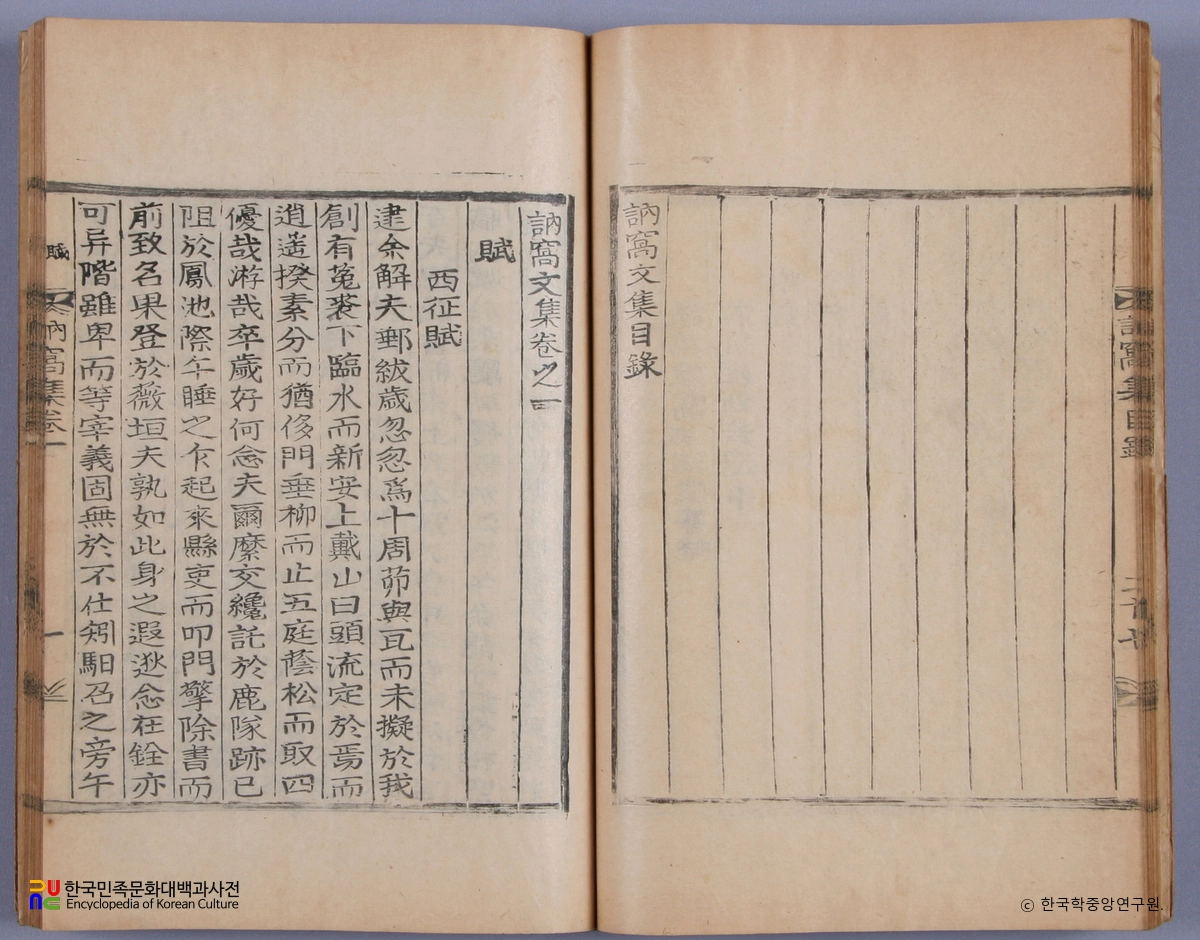 訥窩文集目錄
訥窩集目錄
訥窩文集卷之一
賦
西征賦
逮余解夫鄴紱歲忽忽爲十周茆與瓦而未擬於我
創有菟裘下臨水而新安上戴山曰頭流定於焉而
逍遙揆素分而猶侈門垂柳而止五庭蔭松而取四
優哉游哉卒歲好何念夫爾縻交纔託於鹿隊跡已
阻於鳳池際午睡之乍起來縣吏而叩門擎除書而
前致名果登於薇垣夫孰如此身之遐逖念在銓亦
可异階雖卑而等宰義固無於不仕矧馹召之旁午
賦
訥窩集卷一
一
한국민족문화대백과사전
Encyclopedia of Korean Culture
ⓒ 한국학중앙연구원.